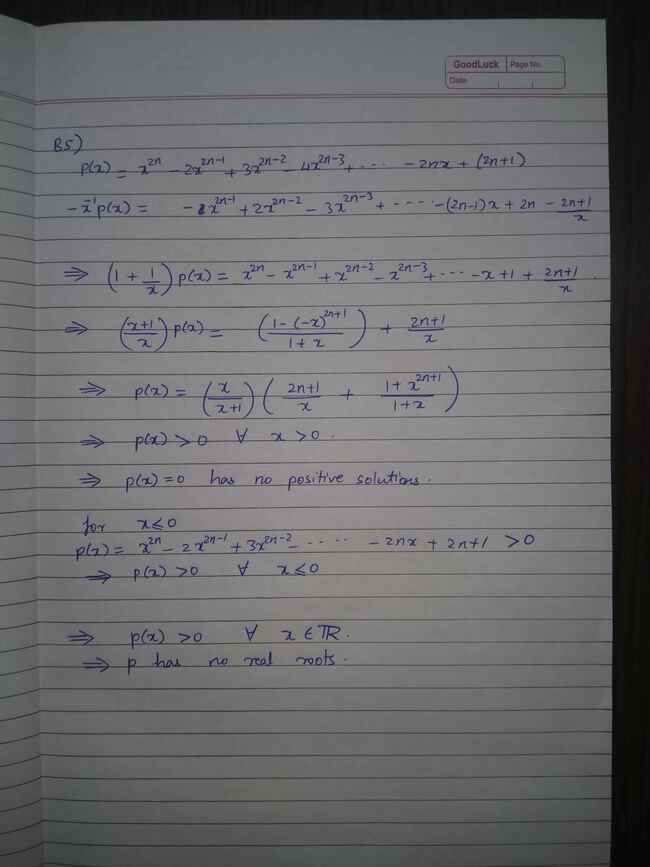 GoodLuck Page No.
Date
B5)
p(x) = x^{2n} - 2x^{2n-1} + 3x^{2n-2} - 4x^{2n-3} + ···· - 2nx + (2n+1)
-x^{-1}p(x) = -x^{2n-1} + 2x^{2n-2} - 3x^{2n-3} + ···· -(2n-1)x + 2n - \frac{2n+1}{x}
⇒ (1 + \frac{1}{x}) p(x) = x^{2n} - x^{2n-1} + x^{2n-2} - x^{2n-3} + ···· -x + 1 + \frac{2n+1}{x}.
⇒ (\frac{x+1}{x}) p(x) = (\frac{1-(-x)^{2n+1}}{1+x}) + \frac{2n+1}{x}
⇒ p(x) = (\frac{x}{x+1}) (\frac{2n+1}{x} + \frac{1+x^{2n+1}}{1+x})
⇒ p(x) > 0 ∀ x > 0.
⇒ p(x) = 0 has no positive solutions.
for x ≤ 0
p(x) = x^{2n} - 2x^{2n-1} + 3x^{2n-2} - ····· - 2nx + 2n+1 > 0
⇒ p(x) > 0 ∀ x ≤ 0
⇒ p(x) > 0 ∀ x ∈ ℝ.
⇒ p has no real roots.